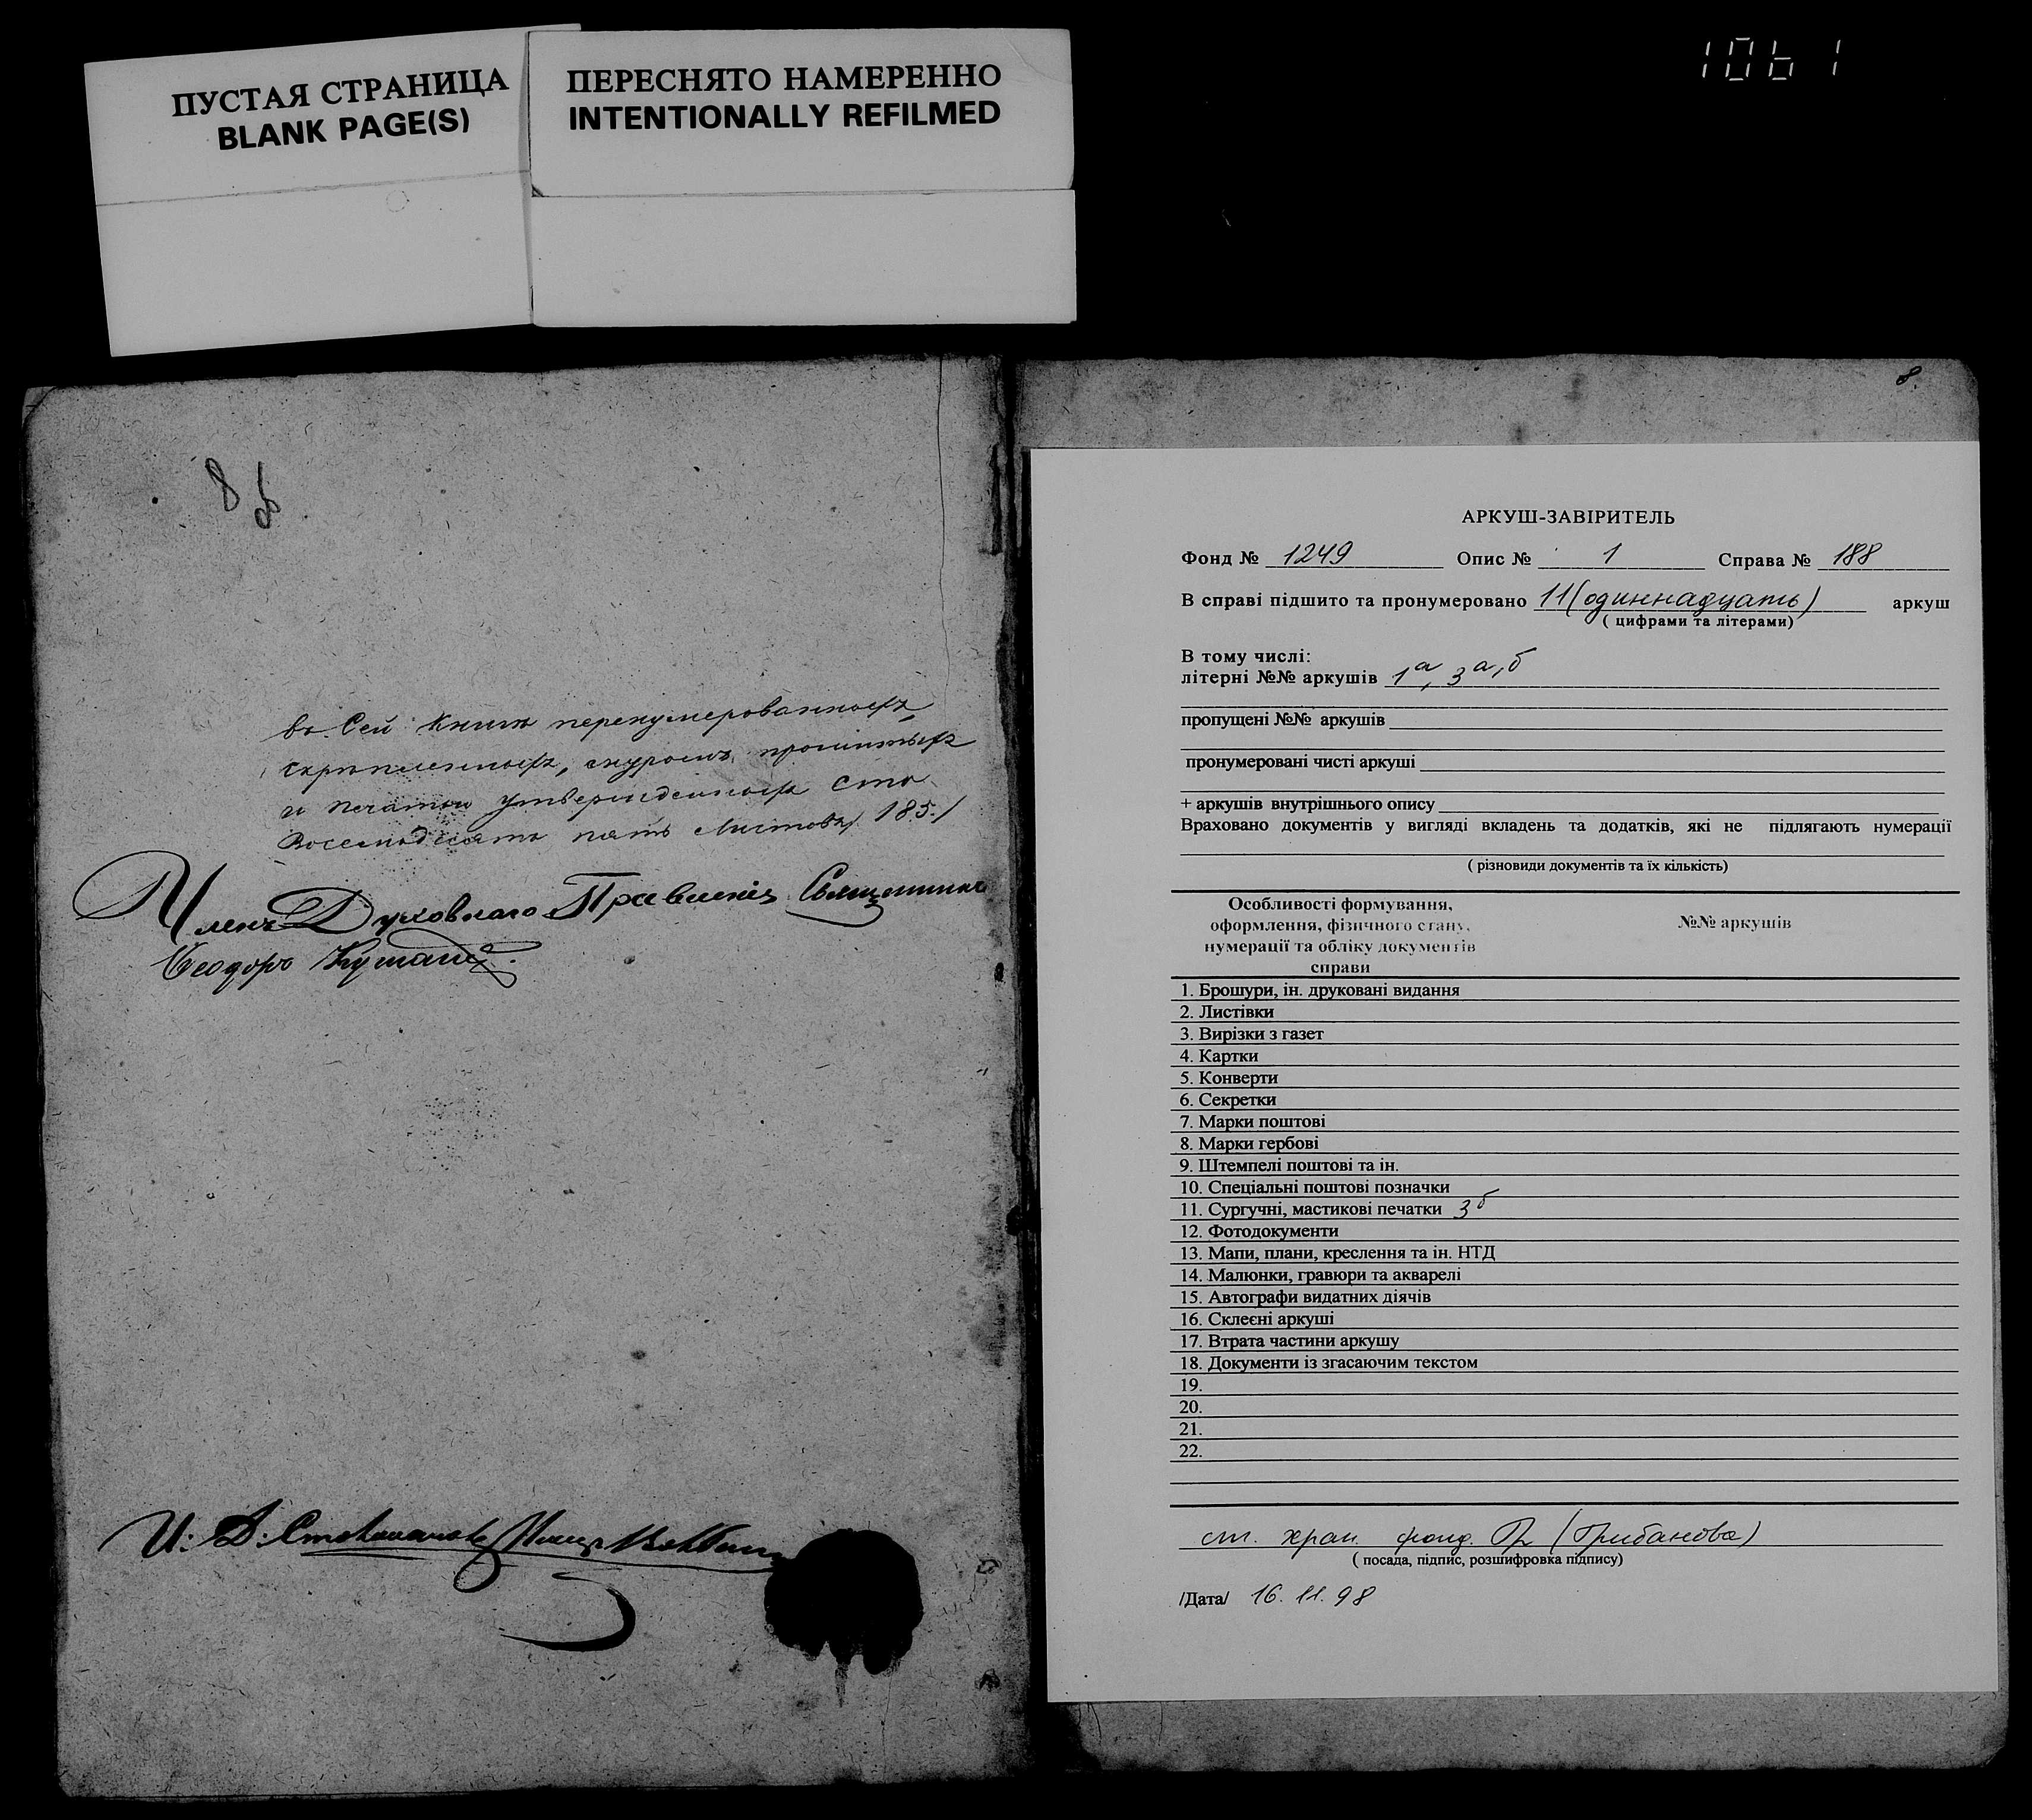 1061
ПУСТАЯ СТРАНИЦА
BLANK PAGE(S)
ПЕРЕСНЯТО НАМЕРЕННО
INTENTIONALLY REFILMED
8
въ Сей Книгѣ перенумерованныхъ,
скрѣпленныхъ, шнуромъ прошитыхъ
и печатью утвержденныхъ сто
Восемьдесятъ пять Листовъ / 185. /
Членъ Духовнаго Правленія Священникъ
Ѳеодоръ
И: Д:
8.
АРКУШ-ЗАВІРИТЕЛЬ
Фонд № 1249 Опис № 1 Справа № 188
В справі підшито та пронумеровано 11 (одиннадцать) аркуш
( цифрами та літерами)
В тому числі:
літерні №№ аркушів 1а, 3а,б
пропущені №№ аркушів
пронумеровані чисті аркуші
+ аркушів внутрішнього опису
Враховано документів у вигляді вкладень та додатків, які не підлягають нумерації
( різновиди документів та їх кількість)
Особливості формування,
оформлення, фізичного стану,
нумерації та обліку документів
справи
№№ аркушів
1. Брошури, ін. друковані видання
2. Листівки
3. Вирізки з газет
4. Картки
5. Конверти
6. Секретки
7. Марки поштові
8. Марки гербові
9. Штемпелі поштові та ін.
10. Спеціальні поштові позначки
11. Сургучні, мастикові печатки 3б
12. Фотодокументи
13. Мапи, плани, креслення та ін. НТД
14. Малюнки, гравюри та акварелі
15. Автографи видатних діячів
16. Склеєні аркуші
17. Втрата частини аркушу
18. Документи із згасаючим текстом
19.
20.
21.
22.
ст. хран. фонд. (Грибанова)
( посада, підпис, розшифровка підпису)
/Дата/ 16. 11. 98